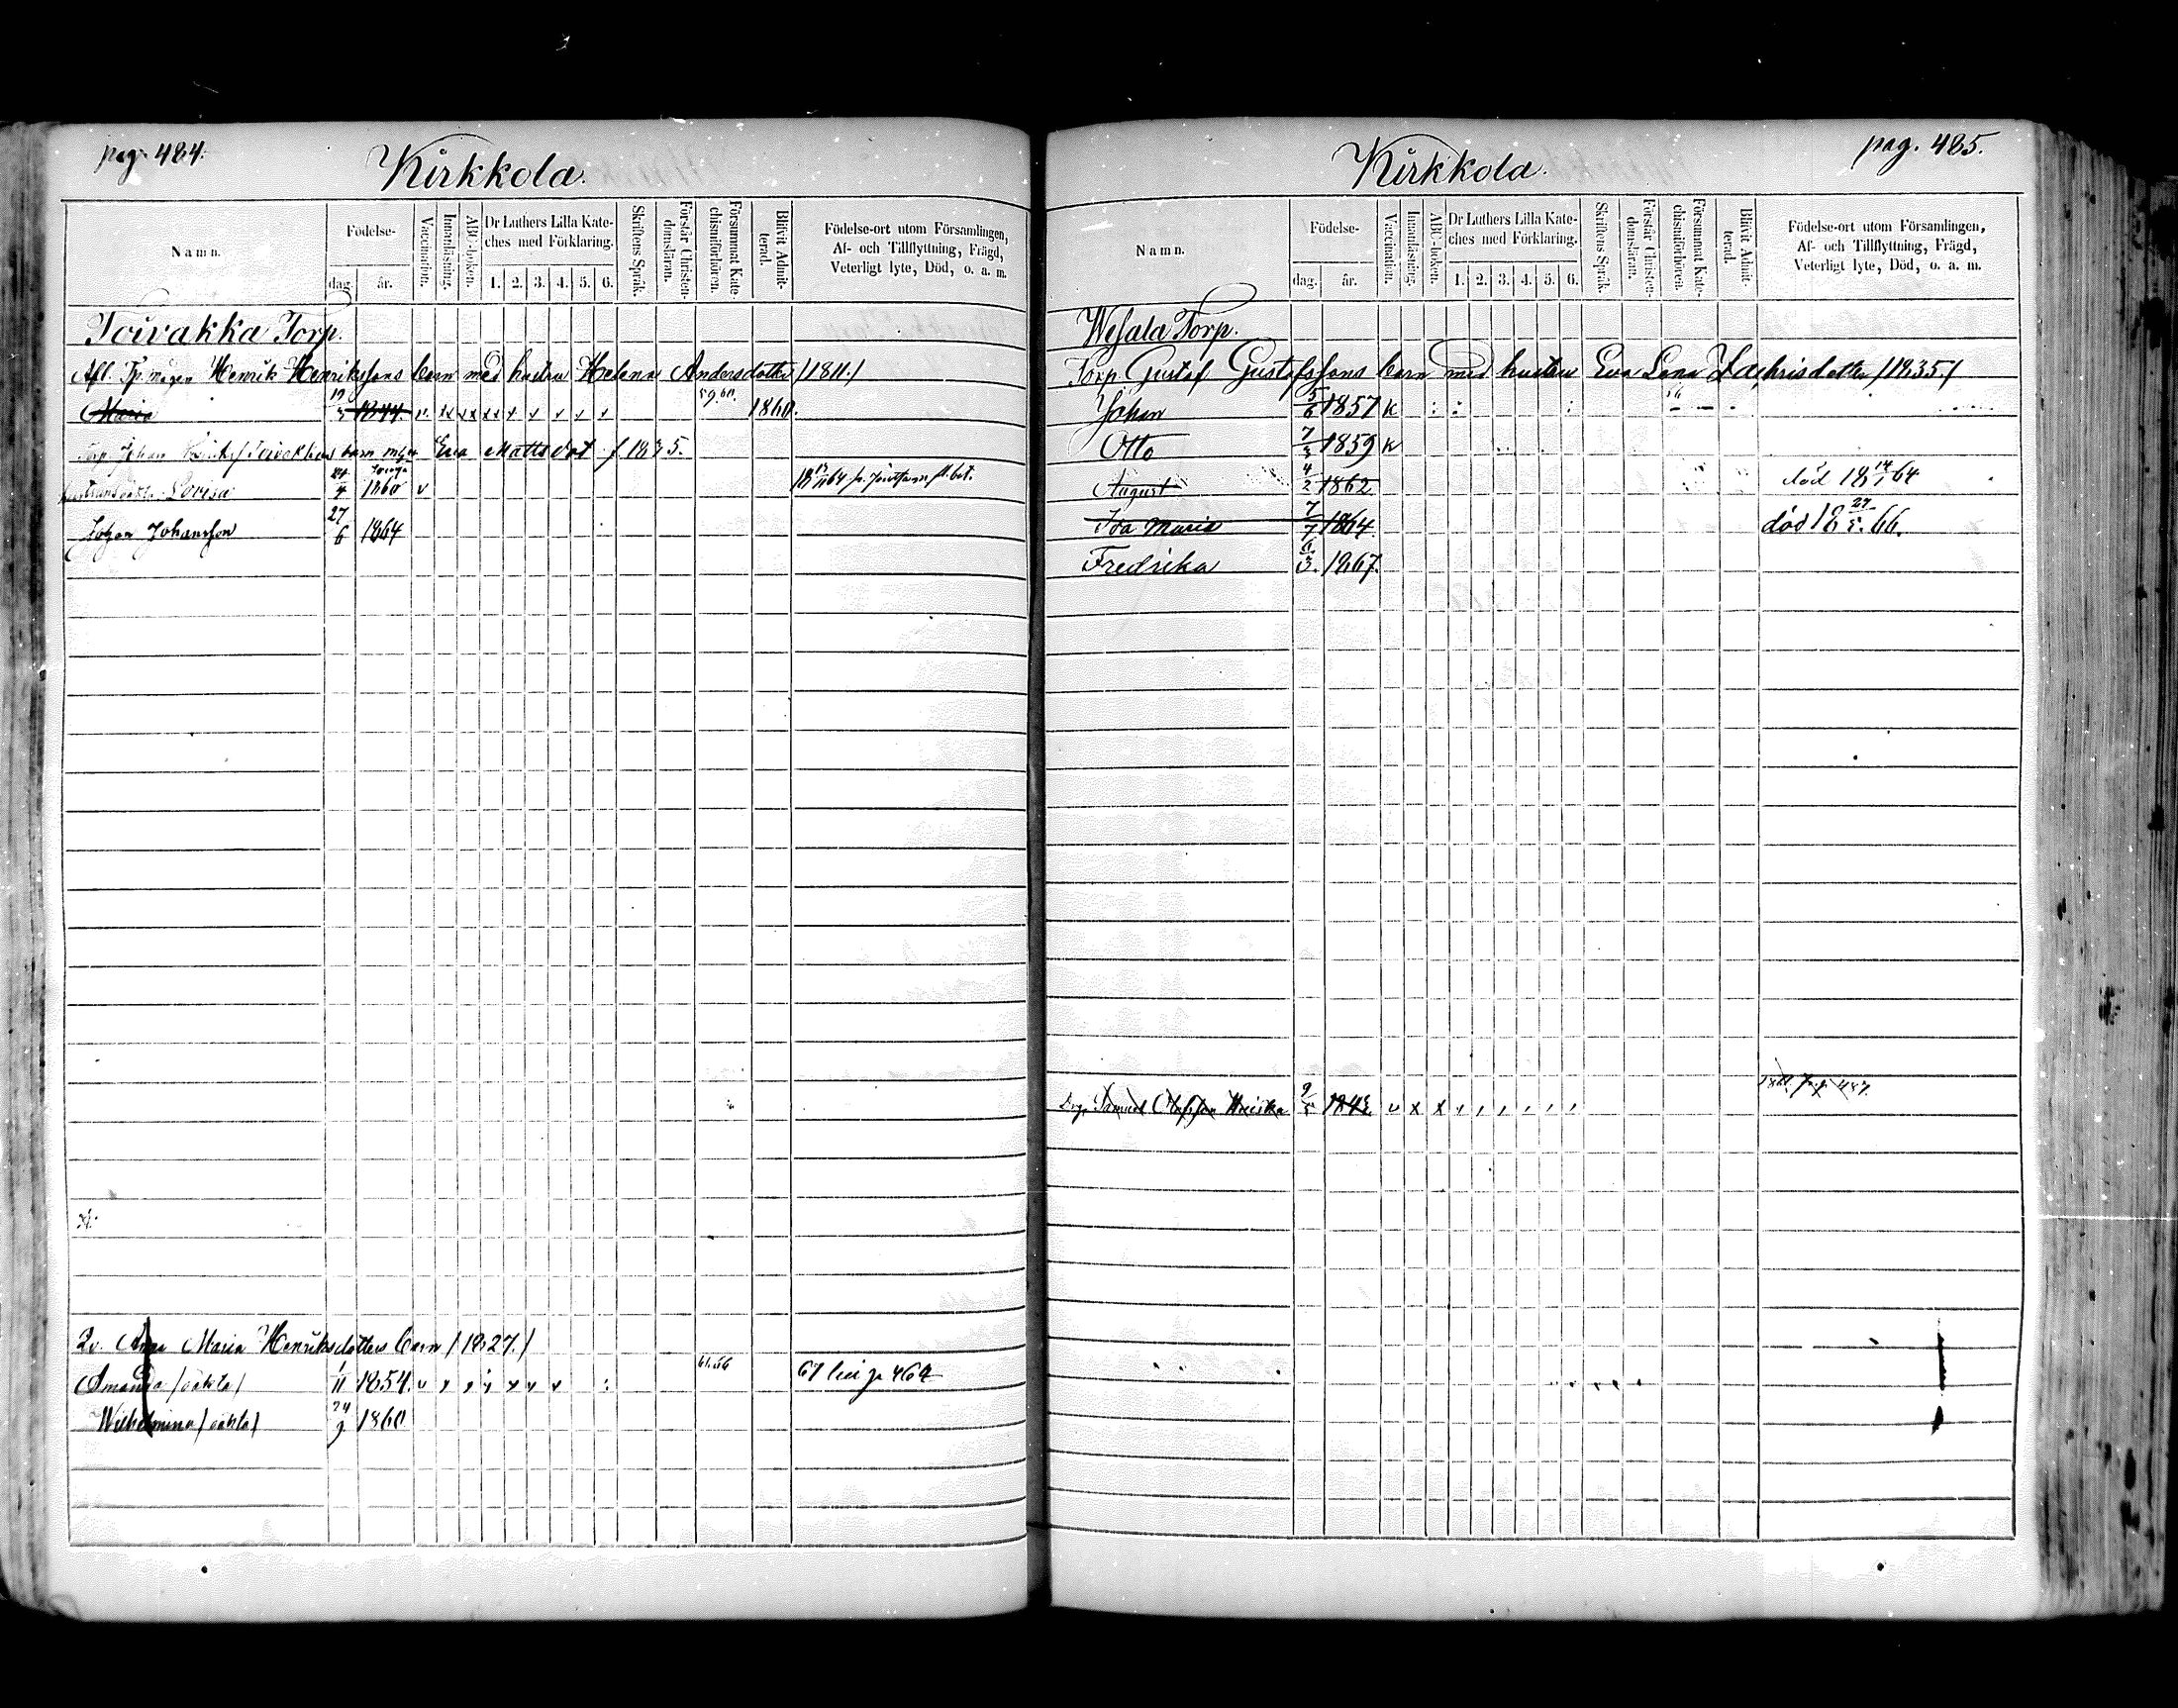 pag. 484.
Kirkkola.
Namn.
Födelse-
dag.
år.
Vaccination.
Innanläsning.
ABC-boken.
Dr Luthers Lilla Kate-
ches med Förklaring.
1. 2. 3. 4. 5. 6.
Skriftens Språk.
Förstår Christen-
domsläran.
Försummat Kate-
chismiförhören.
Blifvit Admit-
terad.
Födelse-ort utom Församlingen,
Af- och Tillflyttning, Frägd,
Veterligt lyte, Död, o. a. m.
Toivakka Torp.
Afl. Henrik Henrikssons barn med hustru Helena Andersdotter /1811./
Maria 1844 v. xx xx xx x v v v v 59.60. 1860.
Torp. Johan barn m. h. Eva Mattsdot f. 1835.
Lovisa 24/4 1860 v
Johan Johansson 27/6 1864
Anna Maria Henriksdotters barn /1827./
Amanda /oäkta/ 1/11 1854. 61.56 67
Wilhelmina /oäkta/ 24/9 1860
pag. 485.
Kirkkola.
Namn.
Födelse-
dag.
år.
Vaccination.
Innanläsning.
ABC-boken.
Dr Luthers Lilla Kate-
ches med Förklaring.
1. 2. 3. 4. 5. 6.
Skriftens Språk.
Förstår Christen-
domsläran.
Försummat Kate-
chismiförhören.
Blifvit Admit-
terad.
Födelse-ort utom Församlingen,
Af- och Tillflyttning, Frägd,
Veterligt lyte, Död, o. a. m.
Wesala Torp.
Torp. Gustaf Gustafssons barn med hustru Eva Lena Zachrisdotter /1835./
Johan 5/6 1857 K
Otto 7/3 1859 K
August 4/2 1862 död 18 14/1 64
Ida Maria 7/7 1864. död 18 27/5. 66.
Fredrika 6/3. 1867.
Drg. Samuel 9/ v x x